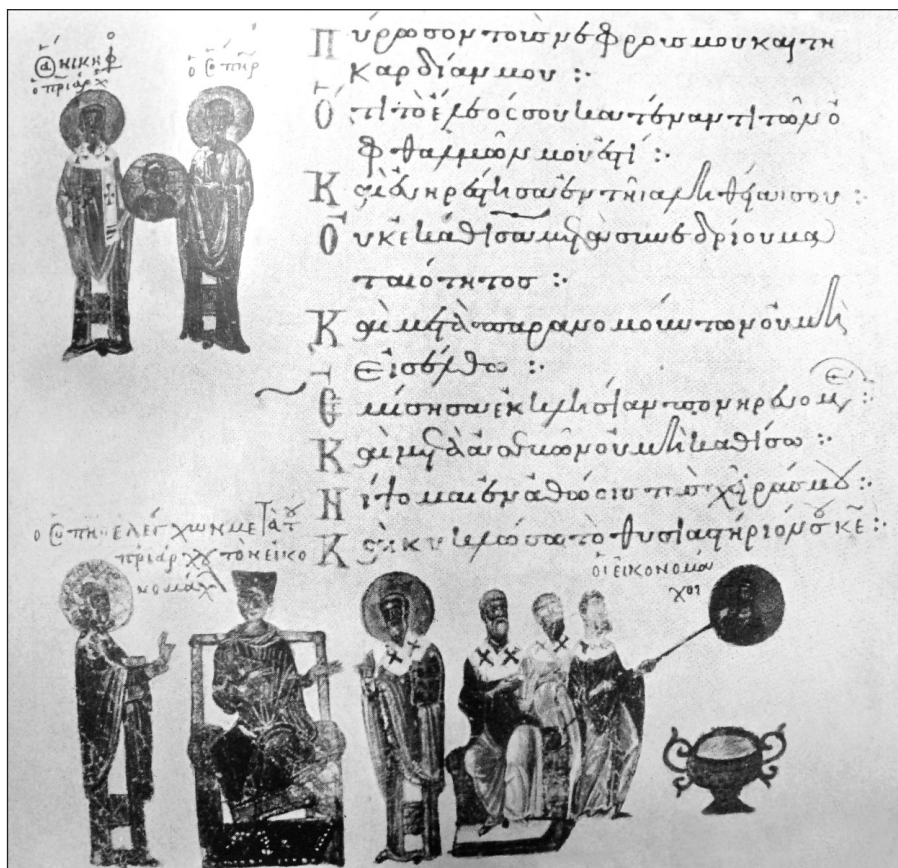 ὁ ἅ νικηφ
ὁ πριάρχ
ὁ στ πηρ
Πύρωσον τοὺς νεφρούς μου καὶ τὴ
καρδίαν μου :·
Ὅτι τὸ ἔλεός σου κατέναντι τῶν ὀ
φθαλμῶν μου ἐστί :·
Καὶ εὐηρέστησα ἐν τῆι ἀληθείαι σου :·
Οὐκ ἐκάθισα μετὰ συνεδρίου μα
ταιότητος :·
Καὶ μετὰ παρανομούντων οὐ μὴ
εἰσέλθω :·
Ἐμίσησα ἐκκλησίαν πονηρευομε :·
Καὶ μετὰ ἀσεβῶν οὐ μὴ καθίσω :·
Νίψομαι ἐν ἀθώοις τὰς χεῖράς μου :·
Καὶ κυκλώσω τὸ θυσιαστήριόν σου κε :·
ὁ στ πηρ ἐλέγχων μετὰ τ
πριάρχου τὸν εἰκο
νομάχ
οἱ εἰκονομά
χοι